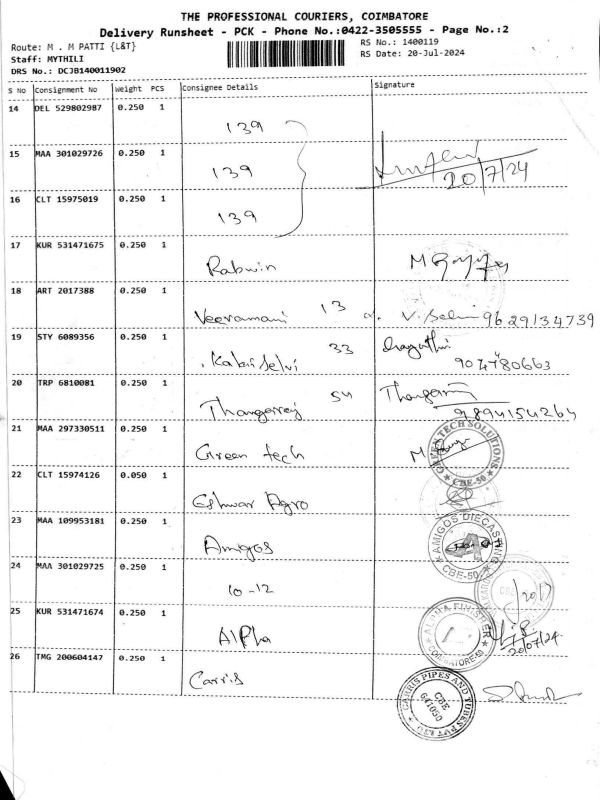 THE PROFESSIONAL COURIERS, COIMBATORE
Delivery Runsheet - PCK - Phone No.:0422-3505555 - Page No.:2
Route: M . M PATTI {L&T}
RS No.: 1400119
Staff: MYTHILI
RS Date: 20-Jul-2024
DRS No.: DCJB140011902
S No Consignment No Weight PCS Consignee Details Signature
14 DEL 529802987 0.250 1
139
15 MAA 301029726 0.250 1
139
20/7/24
16 CLT 15975019 0.250 1
139
17 KUR 531471675 0.250 1
Rabwin
18 ART 2017388 0.250 1
Veeramani 13 V. Selvi 9629134739
19 STY 6089356 0.250 1
Kalai selvi 33
9047780663
20 TRP 6810081 0.250 1
Thangaraj 54 Thangaraj
9894154264
21 MAA 297330511 0.250 1
Green tech
GREEN TECH SOLUTIONS
CBE-50
22 CLT 15974126 0.050 1
Eshwar Agro
23 MAA 109953181 0.250 1
Amigos
AMIGOS DIECASTING
CBE-50
24 MAA 301029725 0.250 1
10-12
25 KUR 531471674 0.250 1
Alpha
ALPHA FINISHER
COIMBATORE-50
20/07/24
26 TMG 200604147 0.250 1
Carris
CARRIS PIPES AND TUBES PVT LTD
CBE
641050